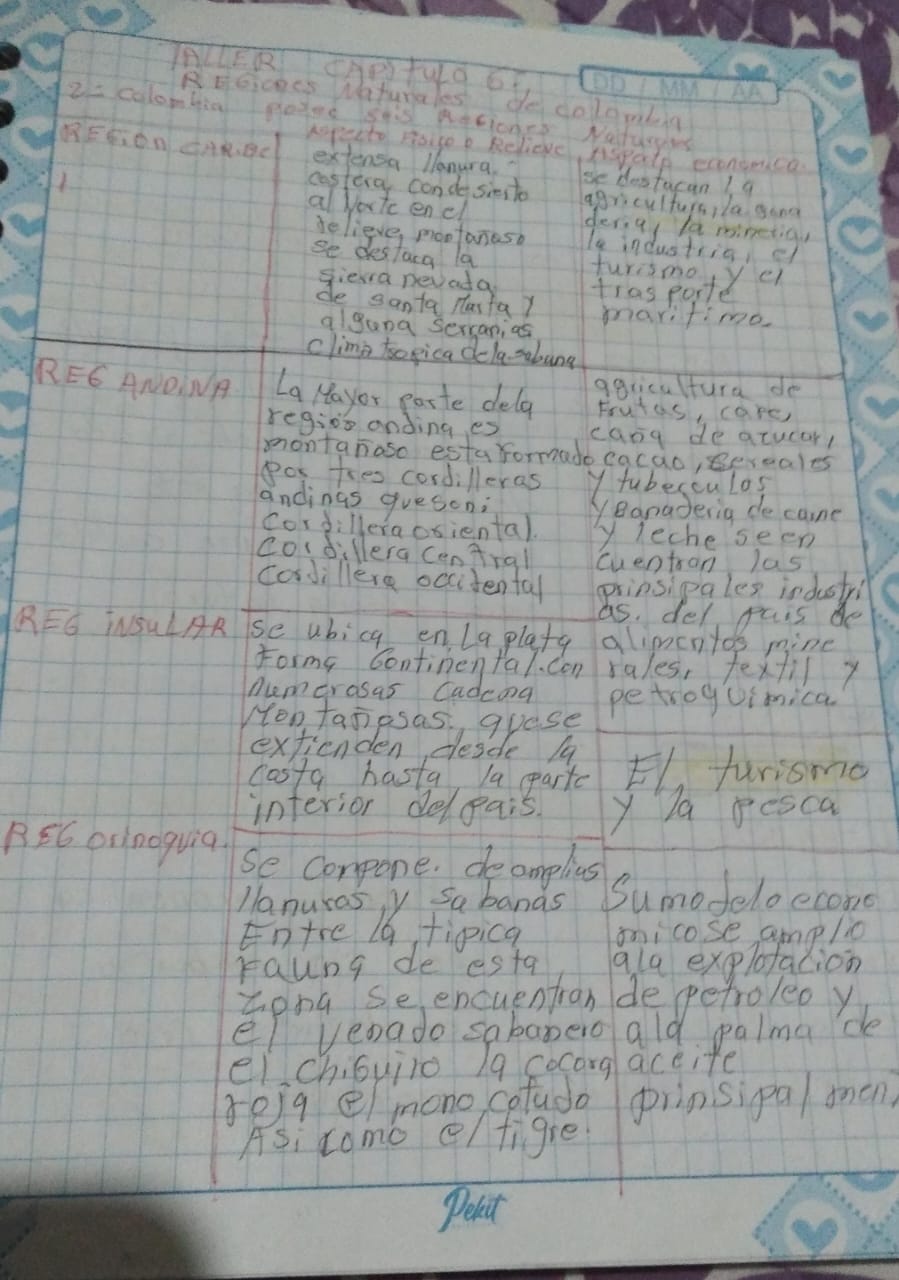 TALLER CAPITULO 6:
DD / MM / AA
REGiones Naturales de colombia
2= colombia posee seis Regiones Naturales
REGION CARIBE
Aspecto Fisico o Relieve
Aspecto economico
1
extensa llanura
costera, con desierto
al Norte en el
relieve, montañoso
se destaca la
sierra nevada
de santa Marta y
alguna serranias
clima tropica de la sabana
se destacan la
agricultura, la gana
deria, la mineria,
la industria, el
turismo, y el
trasporte
maritimo.
REG ANDINA
La Mayor parte dela
region andina es
montañoso esta formado
por tres cordilleras
andinas que son:
Cordillera oriental.
Cordillera Central
Cordillera occidental
agricultura de
Frutas, cafe,
caña de azucar,
cacao, cereales
y tuberculos
y ganaderia de carne
y leche se en
cuentran las
prinsipales industri
as. del pais de
alimentos mine
rales, textil y
petroquimica
REG iNSULAR
se ubica en La plata
Forma Continental. con
numerosas cadena
Montañosas, que se
extienden desde la
costa hasta la parte
interior del pais.
El turismo
y la pesca
REG orinoquia.
Se Compone. de amplias
llanuras y sabanas
Entre la tipica
Fauna de esta
zona se encuentran
el venado sabanero
el chiguiro la
roja el mono cotudo
Asi como el tigre.
Su modelo econo
mico se amplio
a la explotacion
de petroleo y
a la palma de
aceite
prinsipalmen
Pekit